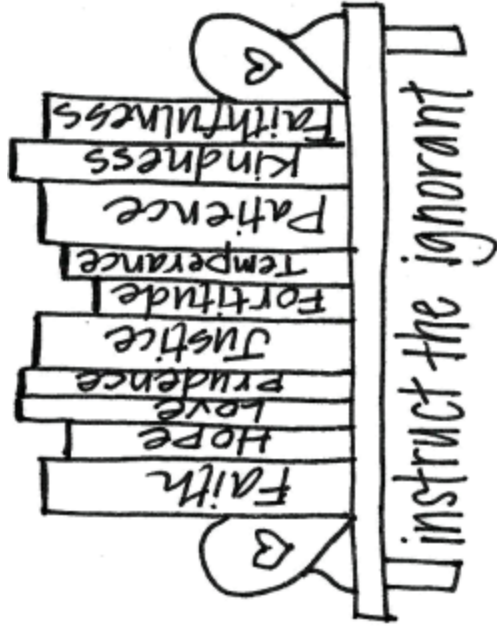 Faith
Hope
Love
Prudence
Justice
Fortitude
Temperance
Patience
Kindness
Faithfulness
instruct the ignorant